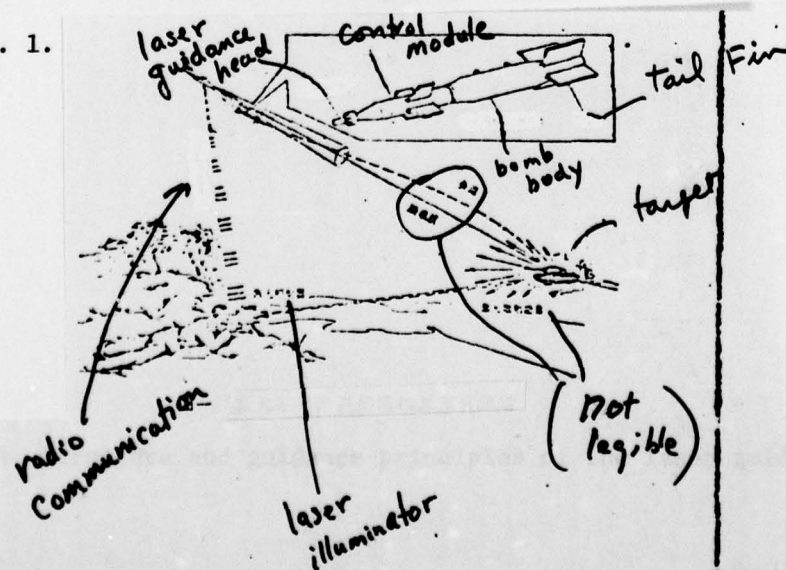 . 1.
laser
guidance
head
control
module
tail Fin
bomb
body
target
radio
communication
laser
illuminator
(not
legible)
and guidance principles of the laser